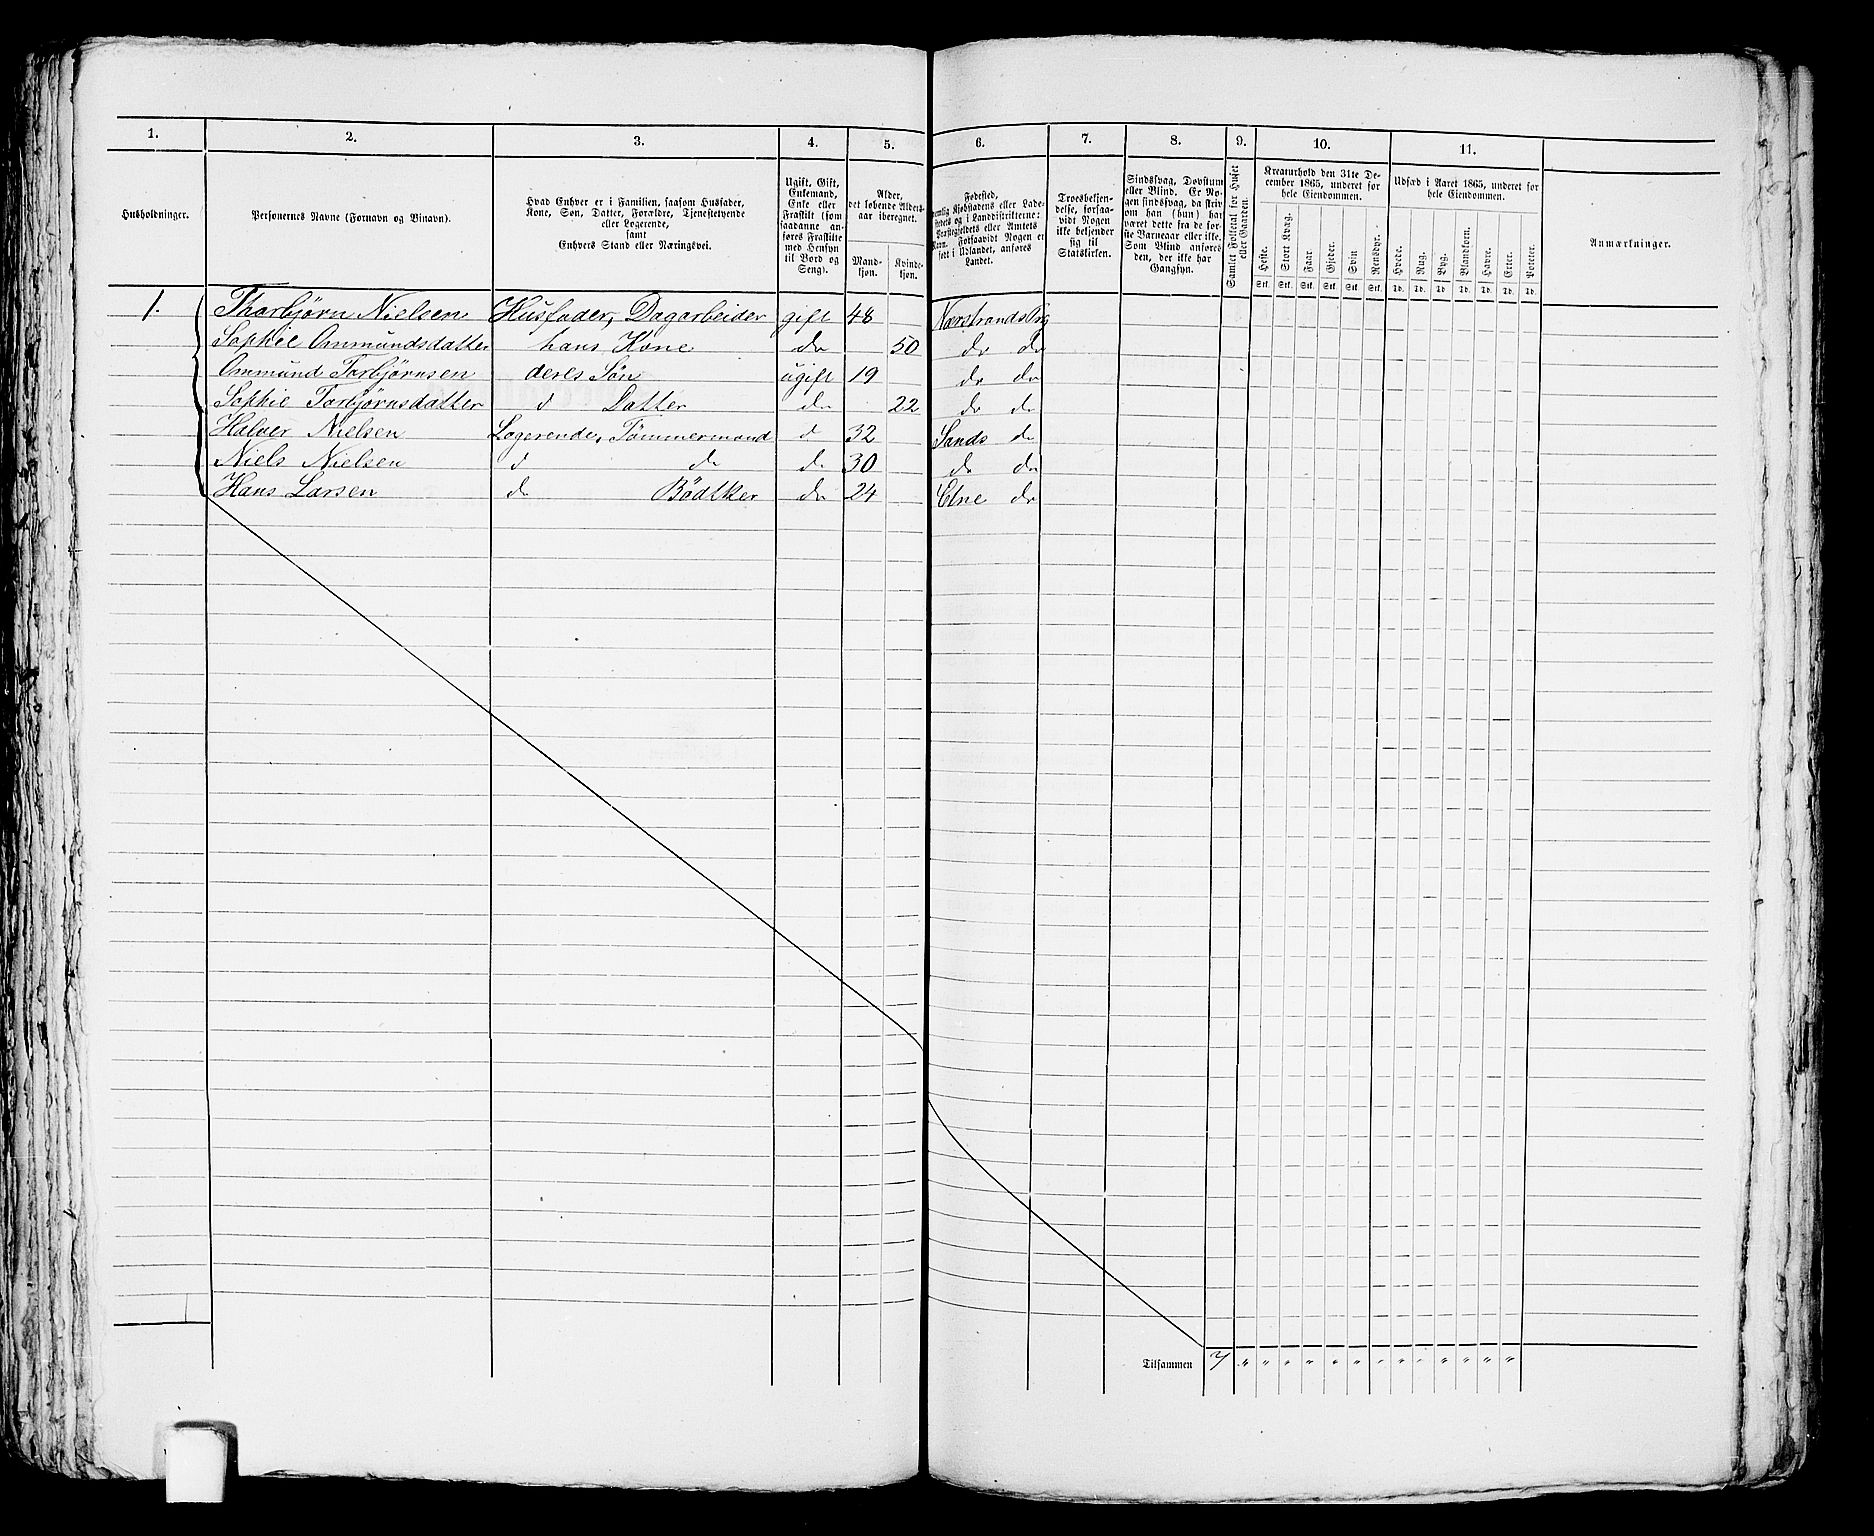 1. 2. 3. 4. 5. 6. 7. 8. 9. 10. 11.
Husholdninger.
Personernes Navne (Fornavn og Binavn).
Hvad Enhver er i Familien, saasom Husfader,
Kone, Søn, Datter, Forældre, Tjenestetyende
eller Logerende,
samt
Enhvers Stand eller Næringsvei.
Ugift, Gift,
Enkemand,
Enke eller
Fraskilt (som
saadanne an-
føres Fraskilte
med Hensyn
til Bord og
Seng).
Alder,
det løbende Alders-
aar iberegnet.
Mand-
kjøn.
Kvinde-
kjøn.
Fødested,
nemlig Kjøbstadens eller Lade-
stedets og i Landdistrikterne:
Præstegjeldets eller Amtets
Navn. Forsaavidt Nogen er
født i Udlandet, anføres
Landet.
Troesbekjen-
delse, forsaa-
vidt Nogen
ikke bekjender
sig til
Statskirken.
Sindssvag, Døvstum
eller Blind. Er No-
gen sindssvag, da skriv
om han (hun) har
været dette fra de før-
ste Barneaar eller ikke.
Som Blind anføres
den, der ikke har
Gangsyn.
Samlet Folketal for Huset
eller Gaarden.
Kreaturhold den 31te De-
cember 1865, underet for
hele Eiendommen.
Heste. Stort Kvæg. Faar Gjeder. Svin Rensdyr.
Stk. Stk. Stk. Stk. Stk. Stk.
Udsæd i Aaret 1865, underet for
hele Eiendommen.
Hvede. Rug. Byg. Blandkorn. Havre. Erter. Poteter.
Td. Td. Td Td. Td. Td. Td.
Anmærkninger.
1. Thorbjørn Nielsen Husfader, Dagarbeider gift 48 Nærstrands Prg
Sophie Ommundsdatter hans Kone do 50 do do
Ommund Torbjørnsen deres Søn ugift 19 do do
Sophie Torbjørnsdatter d Datter do 22 do do
Halver Nielsen Logerende, Tømmermand d 32 Sands do
Niels Nielsen d do do 30 do do
Hans Larsen do Bødtker do 24 Elne do
Tilsammen 7 " " " " " " " " " " " " "